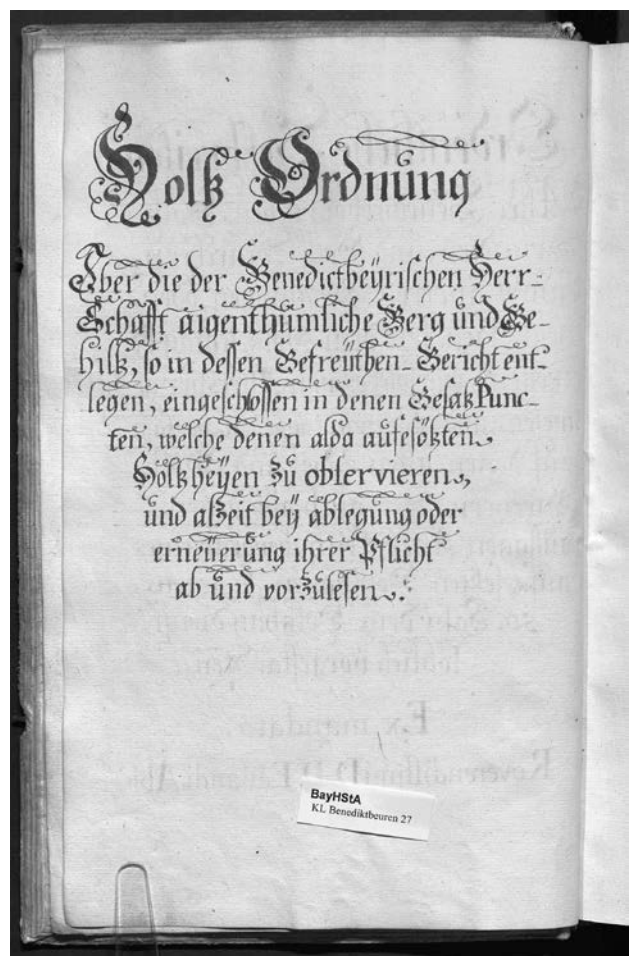 Holtz Ordnung
Über die der Benedictbeÿrischen Herr-
Schafft aigenthümliche Berg und Ge-
hiltz, so in dessen Befreüthen-Gericht ent-
legen, eingeschlossen in denen Gesatz Punc-
ten, welche denen alda aufesötzten
Holtzheÿen zu observieren,
und alzeit beÿ ablegung oder
erneüerung ihrer Pflicht
ab und vorzulesen.
BayHStA
KL Benediktbeuren 27
Ex mandato